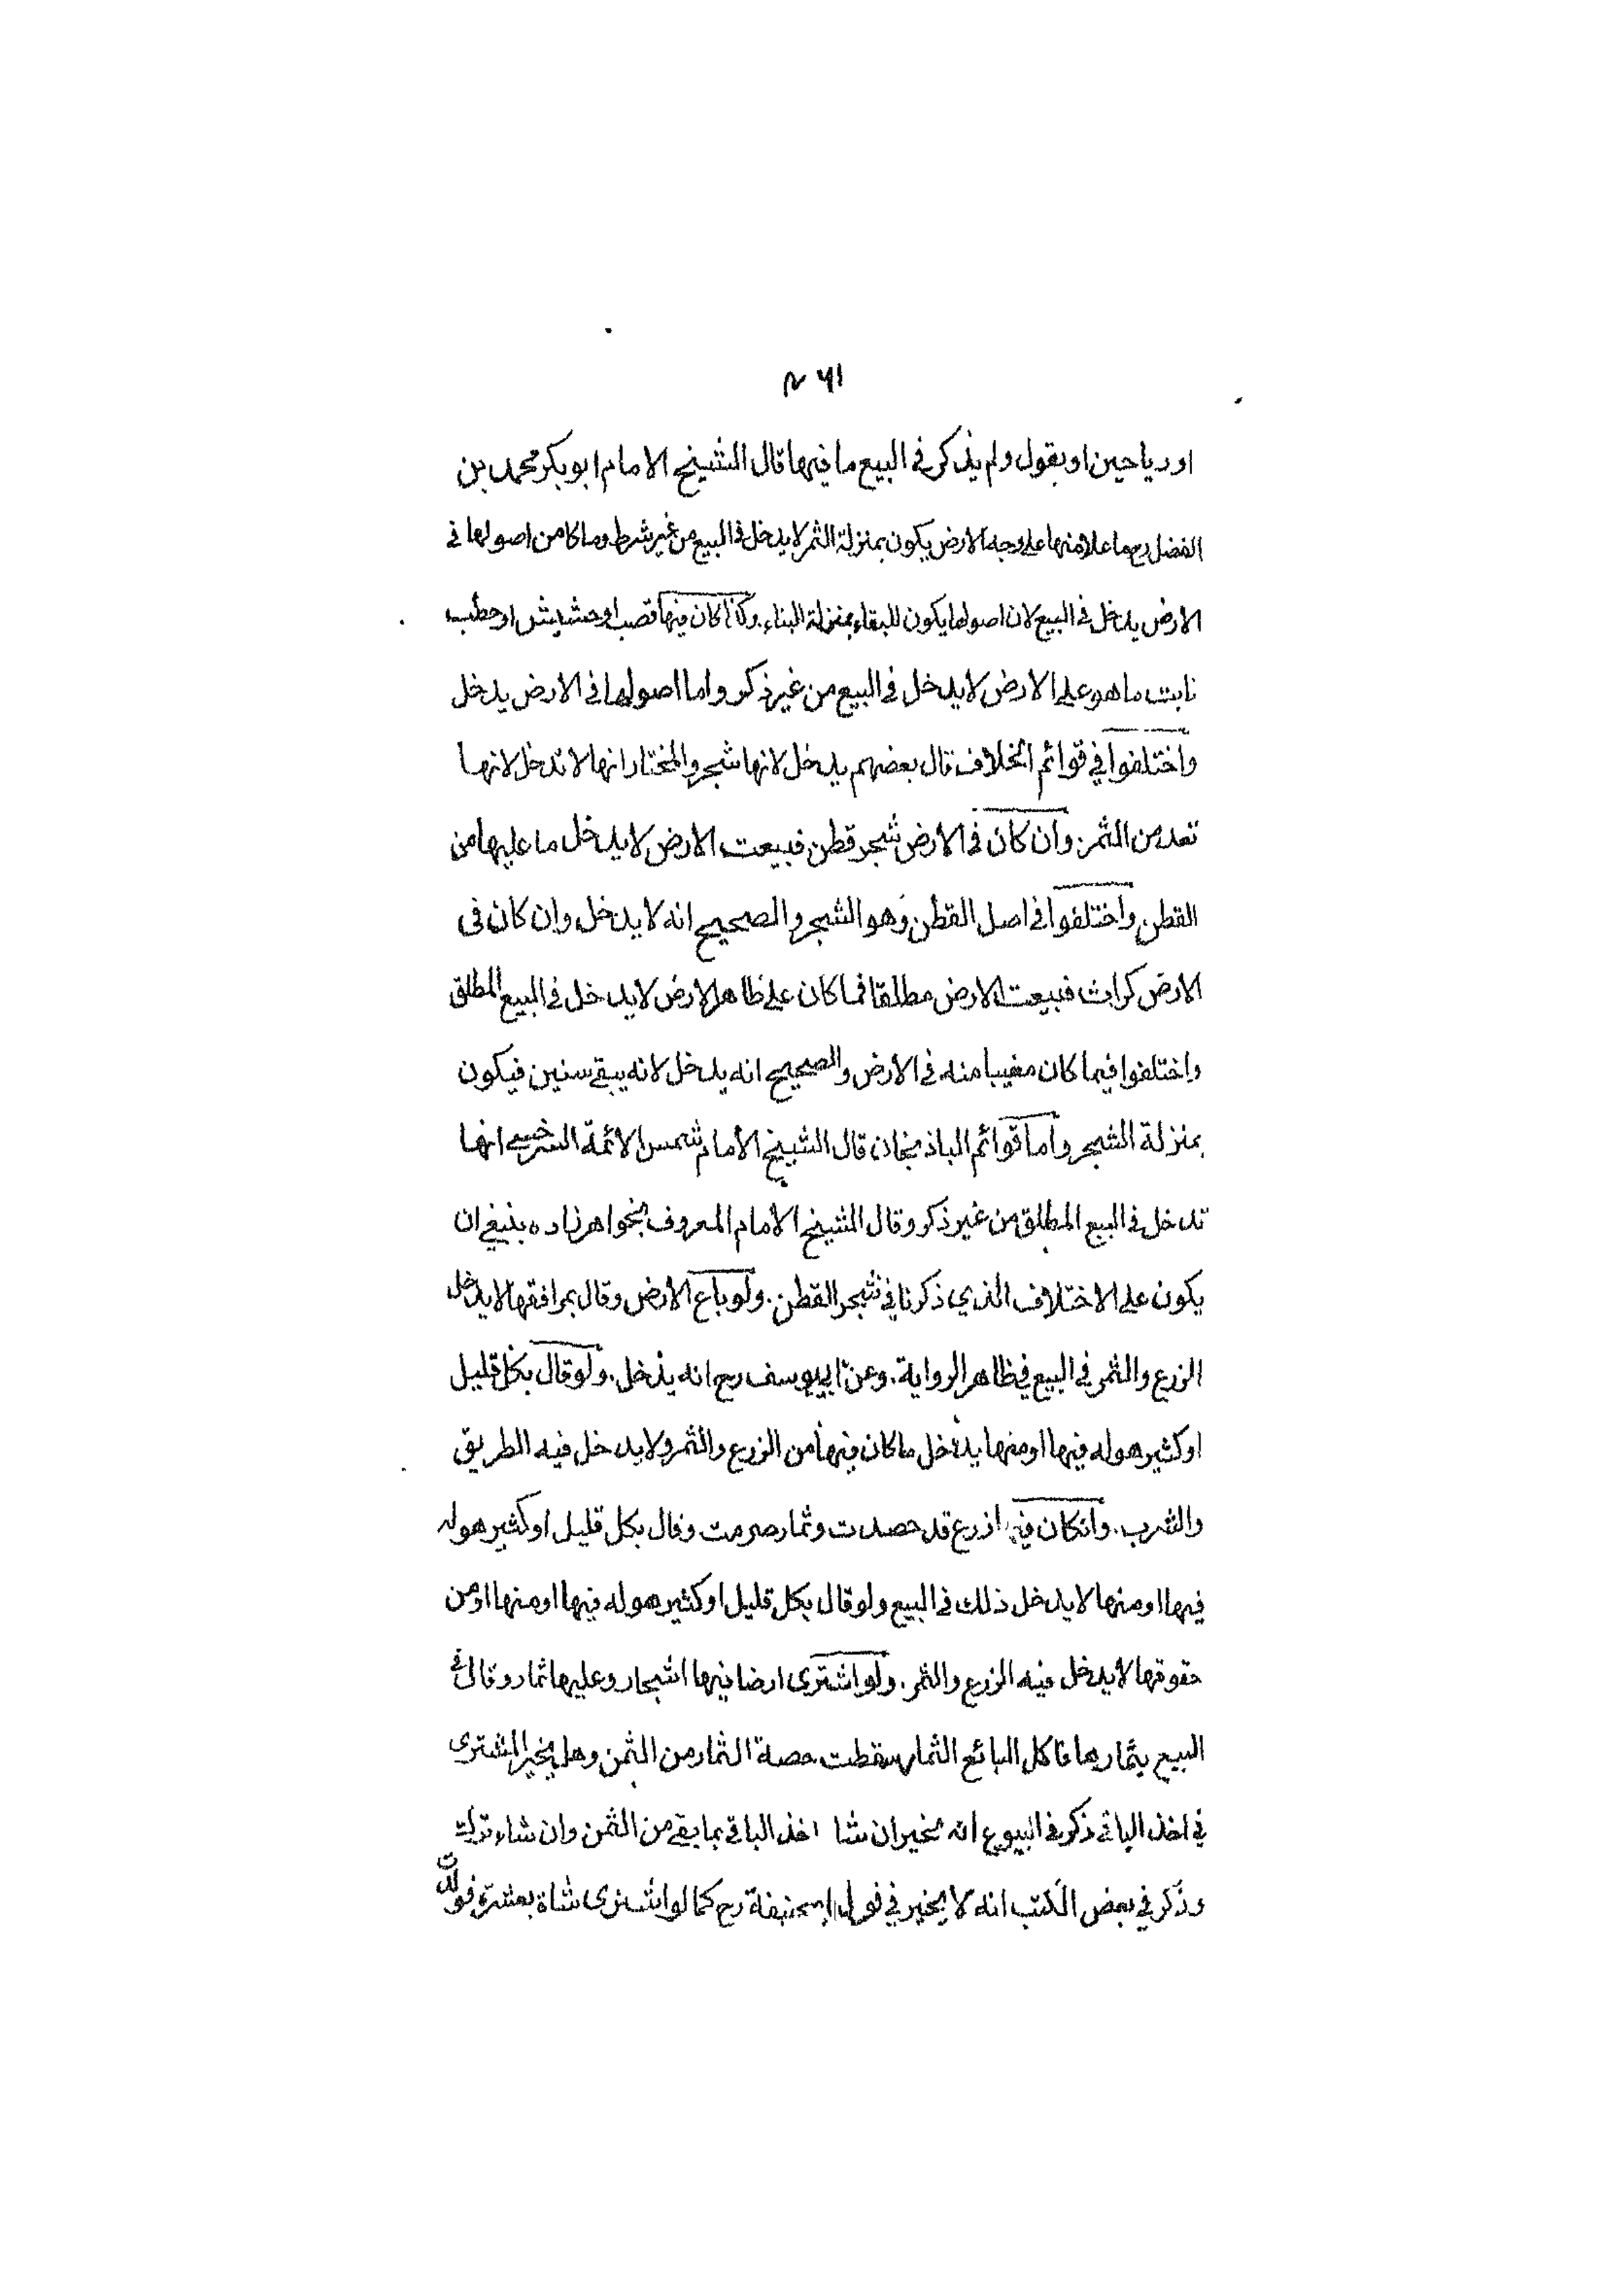 ٦١ ٢
او رياحين او بقول ولم يذكر في البيع ما فيها قال الشيخ الامام ابو بكر محمد بن
الفضل رح ما علا منها على وجه الارض يكون بمنزلة الثمر لا يدخل في البيع من غير شرط وما كا من اصولها في
الارض يدخل في البيع لان اصولها يكون للبقاء بمنزلة البناء. وكذا كان فيها قصب او حشيش او حطب
نابت ما هو على الارض لا يدخل في البيع من غير ذكر واما اصولها في الارض يدخل
واختلفوا في قوائم الخلاف قال بعضهم يدخل لانها شجر والمختار انها لا تدخل لانها
تعد من الثمر. وان كان في الارض شجر قطن فبيعت الارض لا يدخل ما عليها من
القطن واختلفوا في اصل القطن وهو الشجر والصحيح انه لا يدخل وان كان في
الارض كراث فبيعت الارض مطلقا فما كان على ظاهر الارض لا يدخل في البيع المطلق
واختلفوا فيما كان مغيبا منه في الارض والصحيح انه يدخل لانه يبقى سنين فيكون
بمنزلة الشجر واما قوائم الباذنجان قال الشيخ الامام شمس الائمة السرخسي انها
تدخل في البيع المطلق من غير ذكر وقال الشيخ الامام المعروف بخواهرزاده ينبغي ان
يكون على الاختلاف الذي ذكرنا في شجر القطن. ولو باع الارض وقال بمرافقها لا يدخل
الزرع والثمر في البيع في ظاهر الرواية. وعن ابي يوسف رح انه يدخل. ولو قال بكل قليل
او كثير هو له فيها او منها يدخل ما كان فيها من الزرع والثمر ولا يدخل فيه الطريق
والشرب. وانكان فيها زرع قد حصدت وثمار صرمت وقال بكل قليل او كثير هو له
فيها او منها لا يدخل ذلك في البيع ولو قال بكل قليل او كثير هو له فيها او منها او من
حقوقها لا يدخل فيه الزرع والثمر. ولو اشترى ارضا فيها اشجار وعليها ثمار وقال في
البيع بثمارها فاكل البائع الثمار سقطت حصة الثمار من الثمن وهل يخير المشترى
في اخذ الباقي ذكر في البيوع انه مخير ان شا اخذ الباقي بما بقي من الثمن وان شاء ترك
وذكر في بعض الكتب انه لا يخير في قول ابيحنيفة رح كما لو اشترى شاة بعشرة فولدت